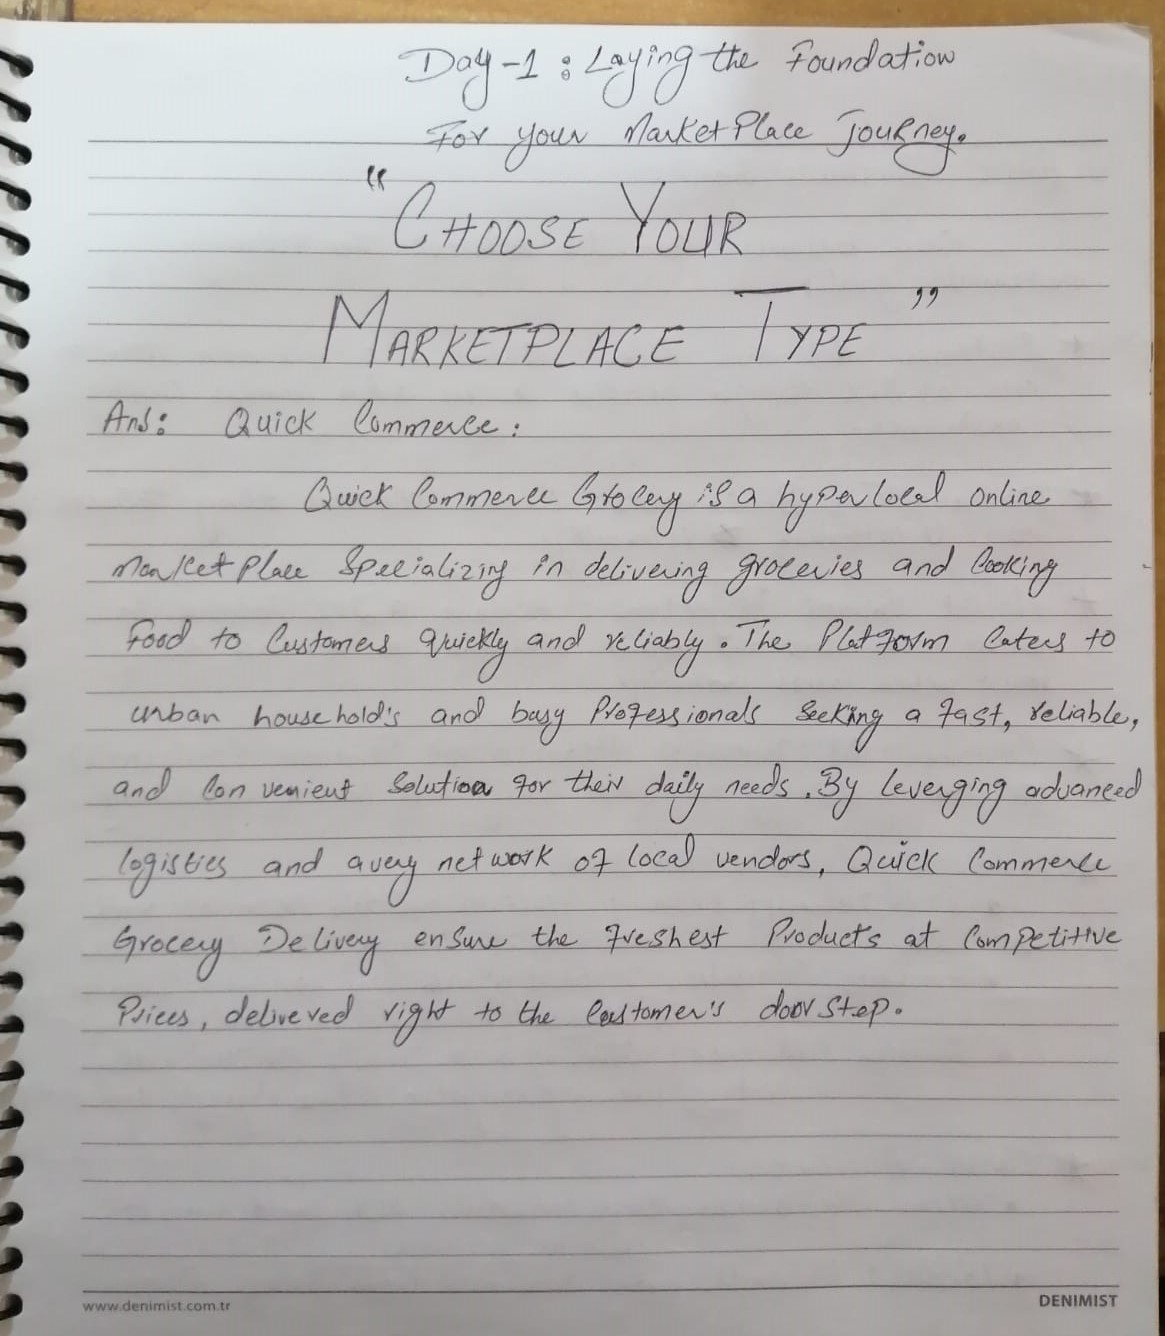 Day-1 : Laying the Foundation
For your MarketPlace Journey.
"CHOOSE YOUR
MARKETPLACE TYPE"
Ans: Quick Commerce :
Quick Commerce Grocery is a hyperlocal online
marketplace Specializing in delivering groceries and Cooking
food to Customers quickly and reliably. The Platform Caters to
urban household's and busy Professionals Seeking a fast, reliable,
and Convenient Solution for their daily needs. By leverging advanced
logistics and a very network of local vendors, Quick Commerce
Grocery Delivery ensure the freshest Products at Competitive
Prices, delivered right to the Customer's doorstep.
www.denimist.com.tr DENIMIST